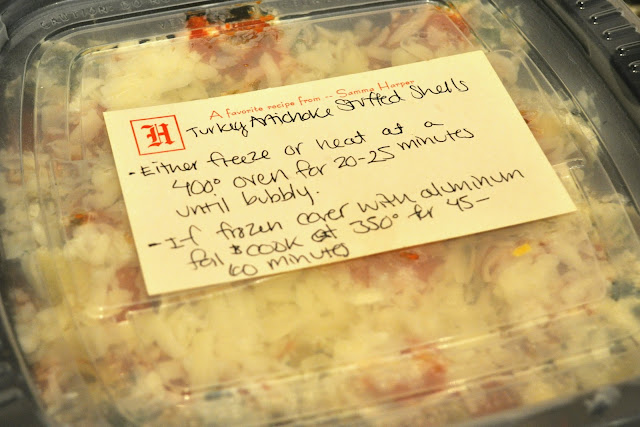 A favorite recipe from -- Samma Harper
H Turkey Artichoke Stuffed Shells
- Either freeze or heat at a
400° oven for 20-25 minutes
until bubbly.
- If frozen cover with aluminum
foil & cook at 350° for 45-
60 minutes